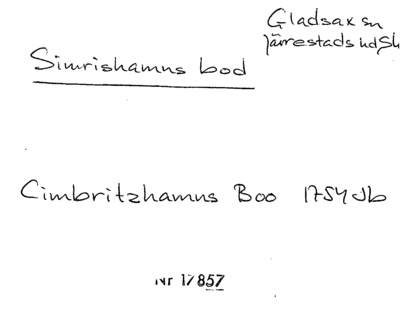 Gladsax sn
Järrestads hd Sk
Simrishamns bod
Cimbritzhamns Boo 1754 Jb
Nr 17857